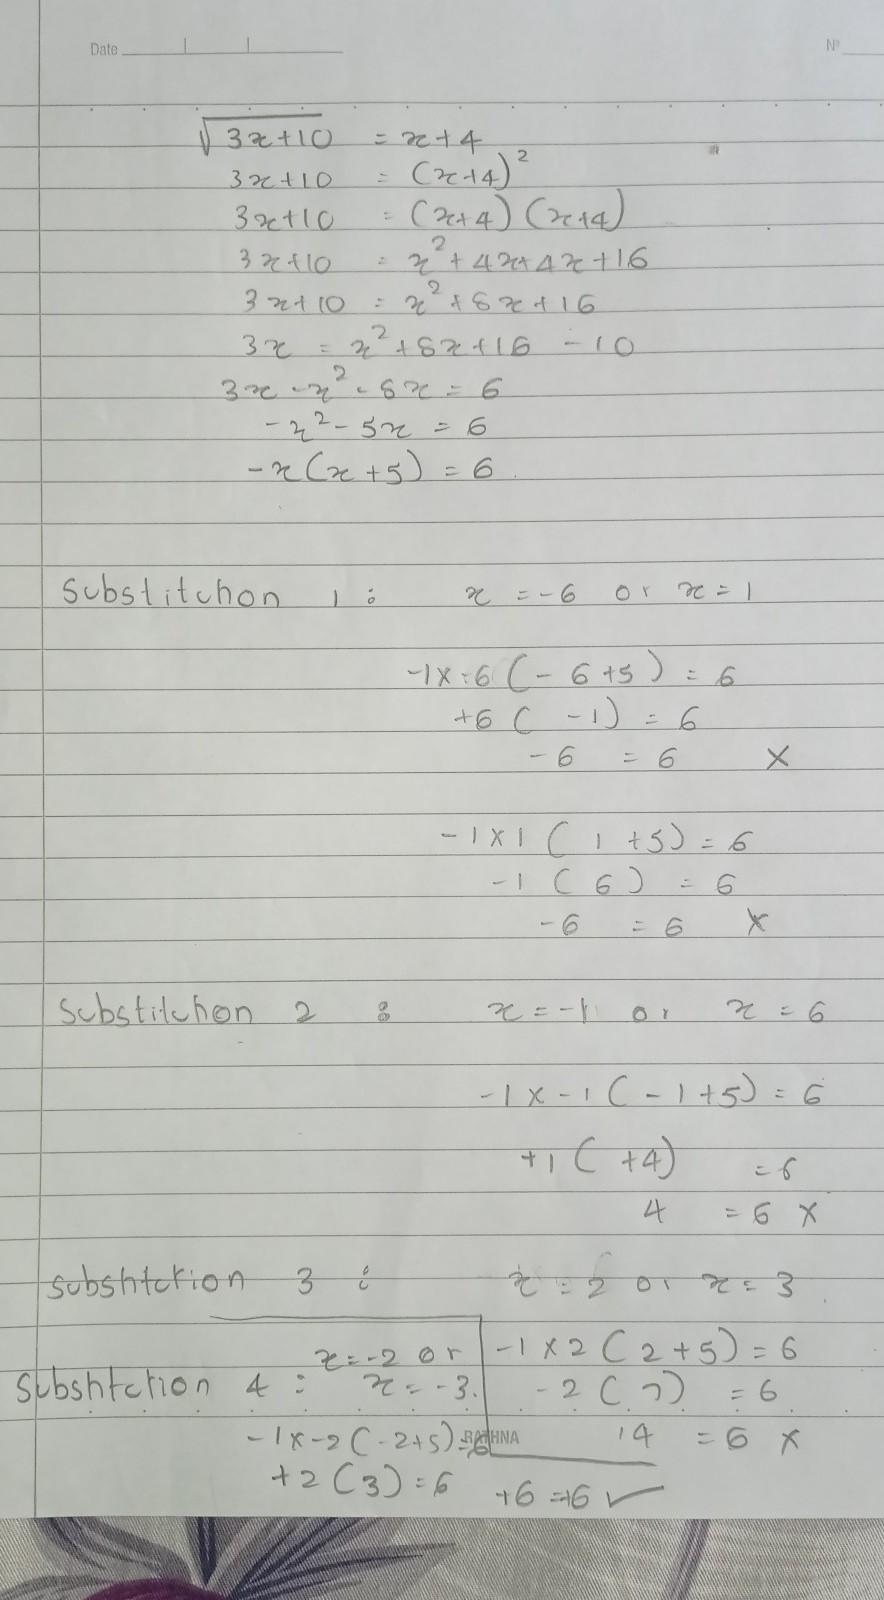 Date
Nº
√3x+10 = x+4
3x+10 = (x+4)²
3x+10 = (x+4)(x+4)
3x+10 = x²+4x+4x+16
3x+10 = x²+8x+16
3x = x²+8x+16-10
3x-x²-8x = 6
-x²-5x = 6
-x(x+5) = 6
Substitution 1: x = -6 or x = 1
-1x-6(-6+5) = 6
+6(-1) = 6
-6 = 6 X
-1x1(1+5) = 6
-1(6) = 6
-6 = 6 X
Substitution 2: x = -1 or x = 6
-1x-1(-1+5) = 6
+1(+4) = 6
4 = 6 X
Substitution 3: x = 2 or x = 3
-1x2(2+5) = 6
-2(7) = 6
14 = 6 X
Substitution 4: x = -2 or x = -3.
-1x-2(-2+5) = 6
RATHNA
+2(3) = 6
+6 = +6 ✓